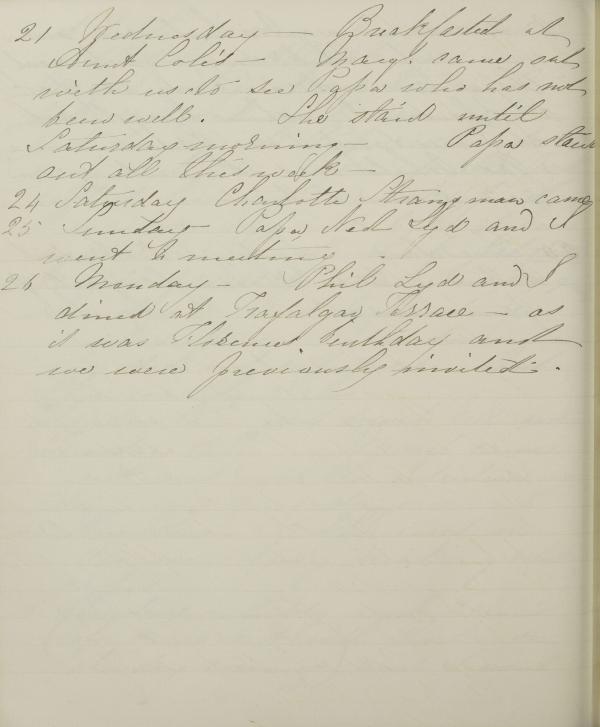 21 Wednesday — Breakfasted at
Aunt Cole's — Marg. came out
with us to see Papa who has not
been well. She staid until
Saturday morning — Papa staid
out all this week —
24 Saturday Charlotte Strangman came
25 Sunday Papa, Ned Lyd and I
went to meeting .
26 Monday — Phil Lyd and I
dined at Trafalgar Terrace — as
it was birthday and
we were previously invited .